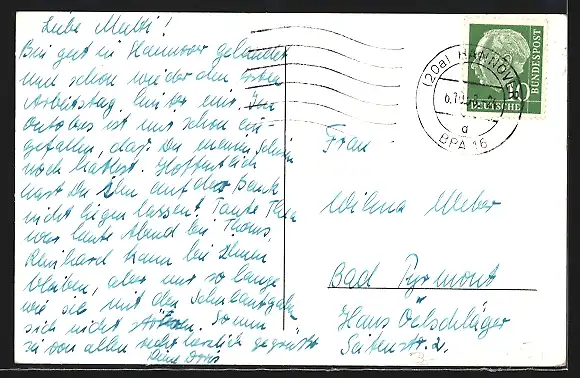 Liebe Mutti!
Bin gut in Hannover gelandet
und schon wieder den ersten
Arbeitstag hinter mir. Im
Autobus ist mir schon ein-
gefallen, daß Du meinen Schirm
noch hattest. Hoffentlich
hast Du ihn auf der Bank
nicht liegen lassen! Tante Thea
war heute Abend bei Thoms,
Reinhard kann bei ihnen
bleiben, aber nur so lange
wie sie mit den Schulaufgaben
sich nicht stören. So nun
sei von allen recht herzlich gegrüßt
Deine Doris
(20a) HANNOVER
6.1
a
BPA 16
DEUTSCHE
BUNDESPOST
Frau
Wilma Weber
Bad Pyrmont
Haus Oelschläger
Seitenstr. 2.